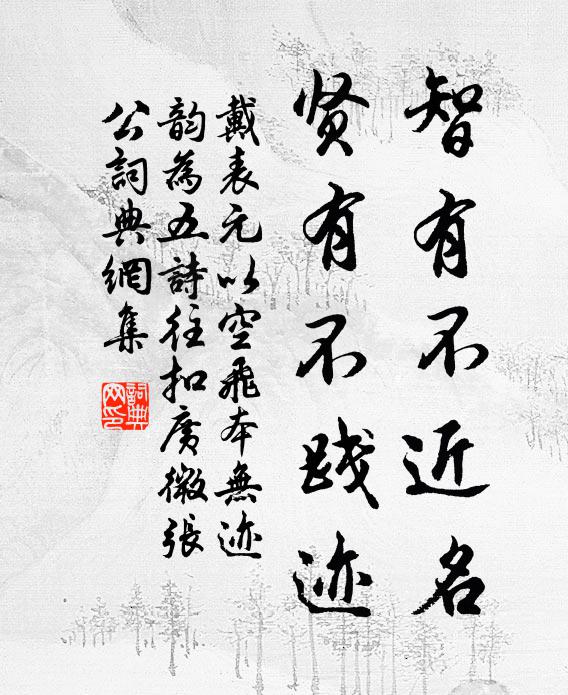 智有不近名
贤有不践迹
戴表元以空飛本無迹
韵為五詩往扣廣微張
公詞典網集
詞典
网印